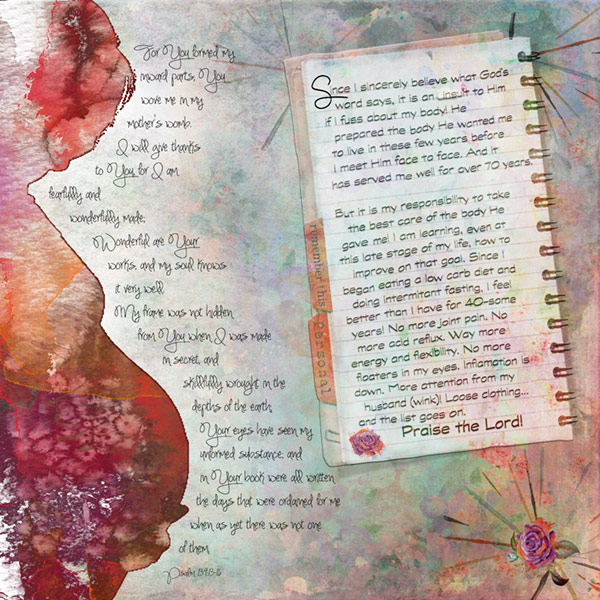 For You formed my
inward parts; You
wove me in my
mother's womb.
I will give thanks
to You for I am
fearfully and
wonderfully made;
Wonderful are Your
works, and my soul knows
it very well.
My frame was not hidden
from You when I was made
in secret, and
skillfully wrought in the
depths of the earth;
Your eyes have seen my
unformed substance; and
in Your book were all written
the days that were ordained for me
when as yet there was not one
of them
Psalm 139:13-16
Since I sincerely believe what God's
word says, it is an insult to Him
if I fuss about my body! He
prepared the body He wanted me
to live in these few years before
I meet Him face to face. And it
has served me well for over 70 years.
But it is my responsibility to take
the best care of the body He
gave me! I am learning, even at
this late stage of my life, how to
improve on that goal. Since I
began eating a low carb diet and
doing intermitant fasting, I feel
better than I have for 40-some
years! No more joint pain. No
more acid reflux. Way more
energy and flexibility. No more
floaters in my eyes. Inflamation is
down. More attention from my
husband (wink)! Loose clothing...
and the list goes on.
Praise the Lord!
remember this
personal